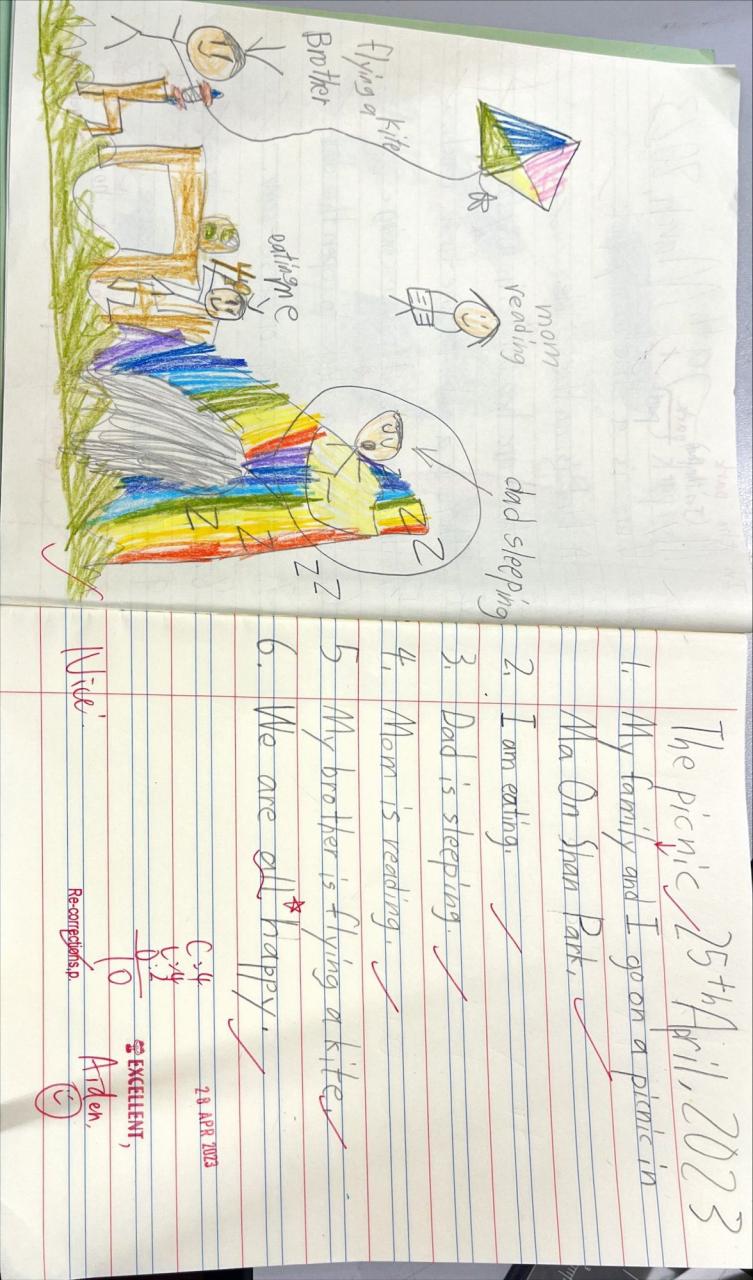 flying a kite
Brother
eating me
mom
reading
dad sleeping
Z
Z
Z
Z
Z
Z
Z
The picnic 25th April, 2023
1. My family and I go on a picnic in
Ma On Shan Park.
2. I am eating.
3. Dad is sleeping.
4. Mom is reading.
5 My brother is flying a kite.
6. We are all happy.
C:4
L:4
O:2
10
28 APR 2023
EXCELLENT,
Aiden,
Nice!
Re-corrections,p.